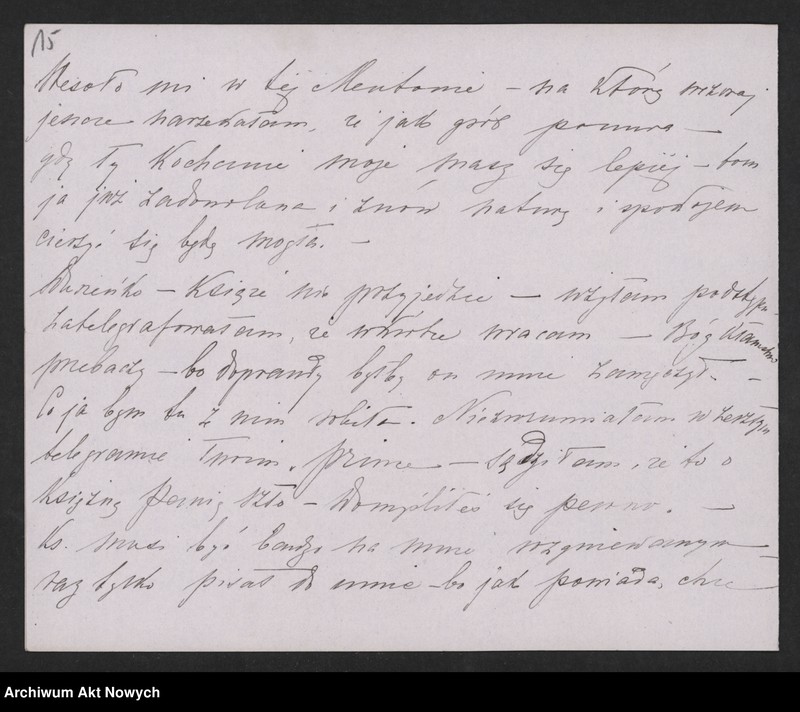 15
Wesoło mi w tej Mentonie – na którą wczoraj
jeszcze narzekałam, że jak grób ponura –
gdy Ty Kochanie moje masz się lepiéj – tom
ja już zadowolona i znów naturą i spokojem
cieszyć się będę mogła. –
– Książe nie przyjedzie – użyłam podstępu
zatelegrafowałam, że wkrótce wracam – Bóg kłamstwo
przebaczy – bo doprawdy byłby on mnie zamęczył. –
Co ja bym tu z nim robiła. Niezrozumiałam w zeszłym
telegramie Twoim, prince – sądziłam, że to o
Księżnę szło – Domyśliłeś się pewno. –
Ks. musi być bardzo na mnie rozgniewanym –
raz tylko pisał do mnie – bo jak powiada, chce
Archiwum Akt Nowych